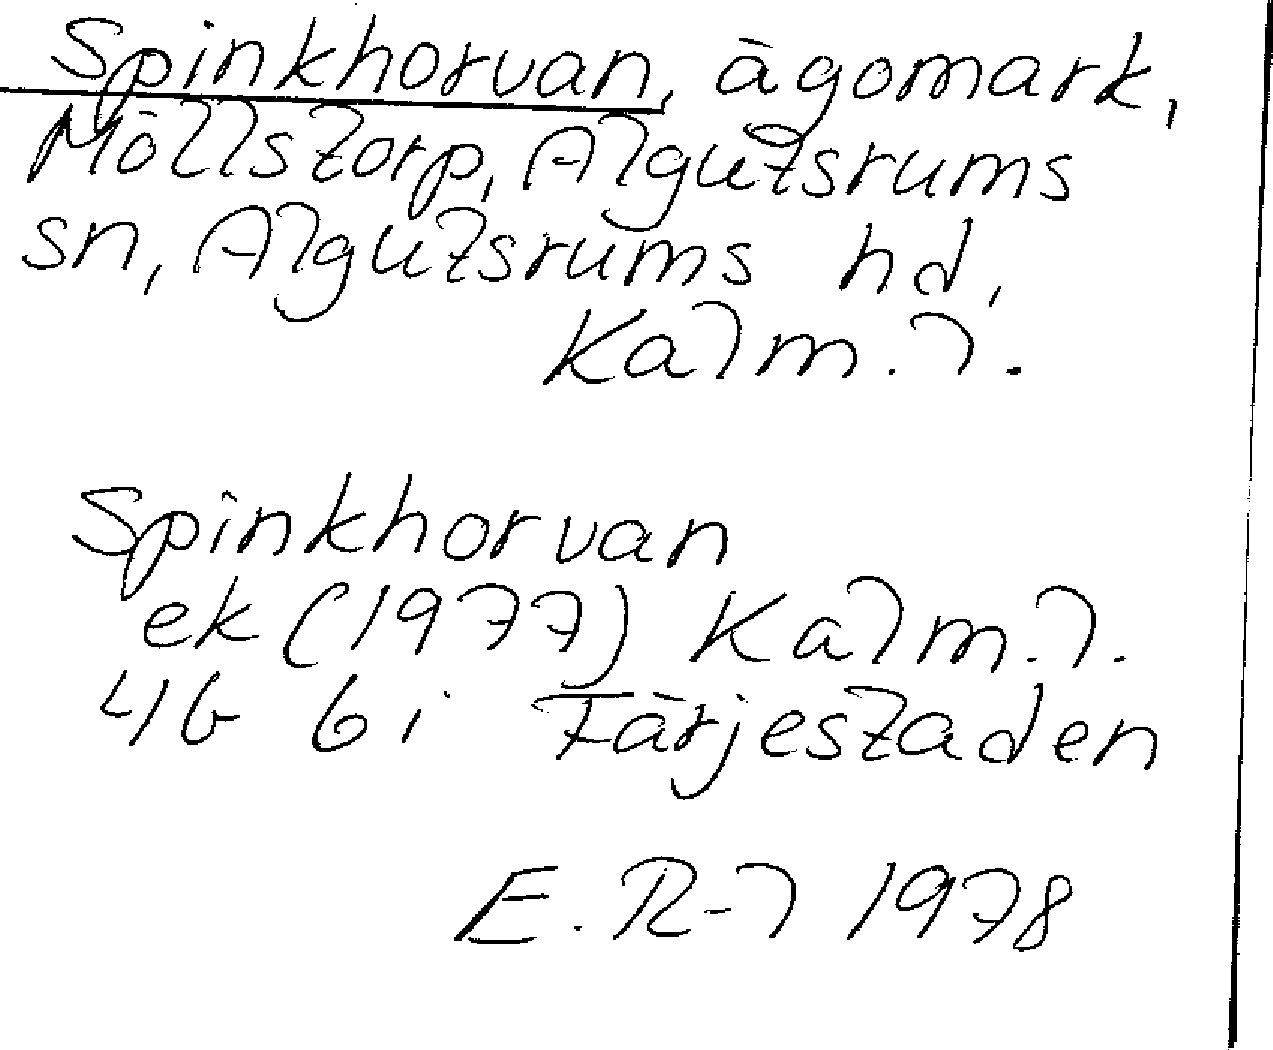 Spinkhorvan, ägomark,
Möllstorp, Algutsrums
sn, Algutsrums hd,
Kalm. l.
Spinkhorvan
ek (1977) Kalm. l.
4G 6i Färjestaden
E. R-l 1978